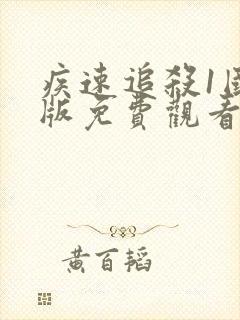 疾速追殺1國
版免費觀看
黃百韜